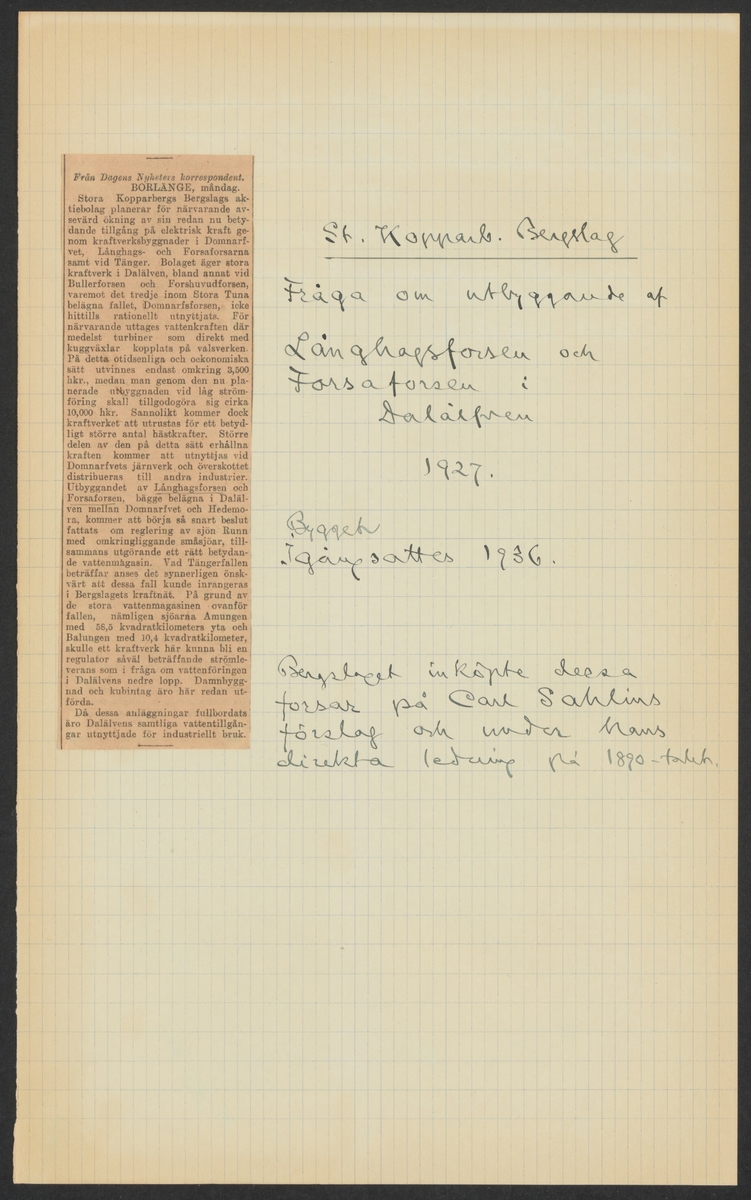 Från Dagens Nyheters korrespondent.
BORLÄNGE, måndag.
Stora Kopparbergs Bergslags ak-
tiebolag planerar för närvarande av-
sevärd ökning av sin redan nu bety-
dande tillgång på elektrisk kraft ge-
nom kraftverksbyggnader i Domnarf-
vet, Långhags- och Forsaforsarna
samt vid Tänger. Bolaget äger stora
kraftverk i Dalälven, bland annat vid
Bullerforsen och Forshuvudforsen,
varemot det tredje inom Stora Tuna
belägna fallet, Domnarfsforsen, icke
hittills rationellt utnyttjats. För
närvarande uttages vattenkraften där
medelst turbiner som direkt med
kuggväxlar kopplats på valsverken.
På detta otidsenliga och oekonomiska
sätt utvinnes endast omkring 3,500
hkr., medan man genom den nu pla-
nerade utbyggnaden vid låg ström-
föring skall tillgodogöra sig cirka
10,000 hkr. Sannolikt kommer dock
kraftverket att utrustas för ett betyd-
ligt större antal hästkrafter. Större
delen av den på detta sätt erhållna
kraften kommer att utnyttjas vid
Domnarfvets järnverk och överskottet
distribueras till andra industrier.
Utbyggandet av Långhagsforsen och
Forsaforsen, bägge belägna i Daläl-
ven mellan Domnarfvet och Hedemo-
ra, kommer att börja så snart beslut
fattats om reglering av sjön Runn
med omkringliggande småsjöar, till-
sammans utgörande ett rätt betydan-
de vattenmagasin. Vad Tängerfallen
beträffar anses det synnerligen önsk-
värt att dessa fall kunde inrangeras
i Bergslagets kraftnät. På grund av
de stora vattenmagasinen ovanför
fallen, nämligen sjöarna Amungen
med 58,5 kvadratkilometers yta och
Balungen med 10,4 kvadratkilometer,
skulle ett kraftverk här kunna bli en
regulator såväl beträffande strömle-
verans som i fråga om vattenföringen
i Dalälvens nedre lopp. Dammbygg-
nad och kubintag äro här redan ut-
förda.
Då dessa anläggningar fullbordats
äro Dalälvens samtliga vattentillgån-
gar utnyttjade för industriellt bruk.
St. Kopparb. Bergslag
Fråga om utbyggande af
Långhagsforsen och
Forsaforsen i
Dalälfven
1927.
Bygget
Igångsattes 1936.
Bergslaget inköpte dessa
forsar på Carl Sahlins
förslag och under hans
direkta ledning på 1890-talet.